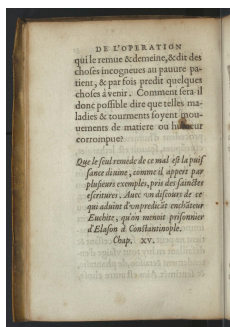 DE L'OPERATION
qui le remue & demeine, & dit des
choses incogneues au pauure pa-
tient, & par fois predit quelques
choses à venir. Comment sera il
donc possible dire que telles ma-
ladies & tourments soyent mou-
uements de matiere ou humeur
corrompue?
Que le seul remede de ce mal est la puis
sance diuine, comme il appert par
plusieurs exemples, pris des sainctes
escritures. Auec vn discours de ce
qui aduint d'vn predicāt enchāteur
Euchite, qu'on menoit prisonnier
d'Elason à Constantinople.
Chap. XV.